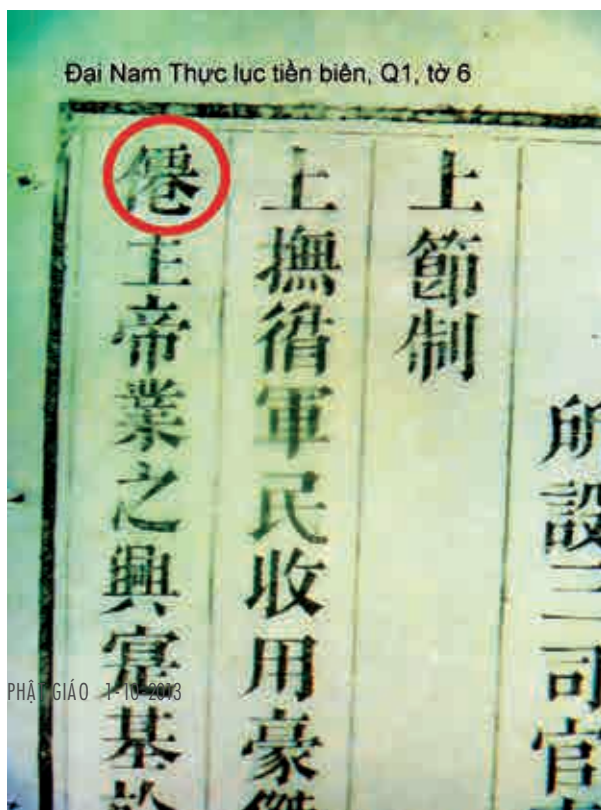 Đại Nam Thực lục tiền biên, Q1, tờ 6
所設三司官
上節制
上撫循軍民收用豪傑
僊主帝業之興寔基於
PHẬT GIÁO 1-10-2013